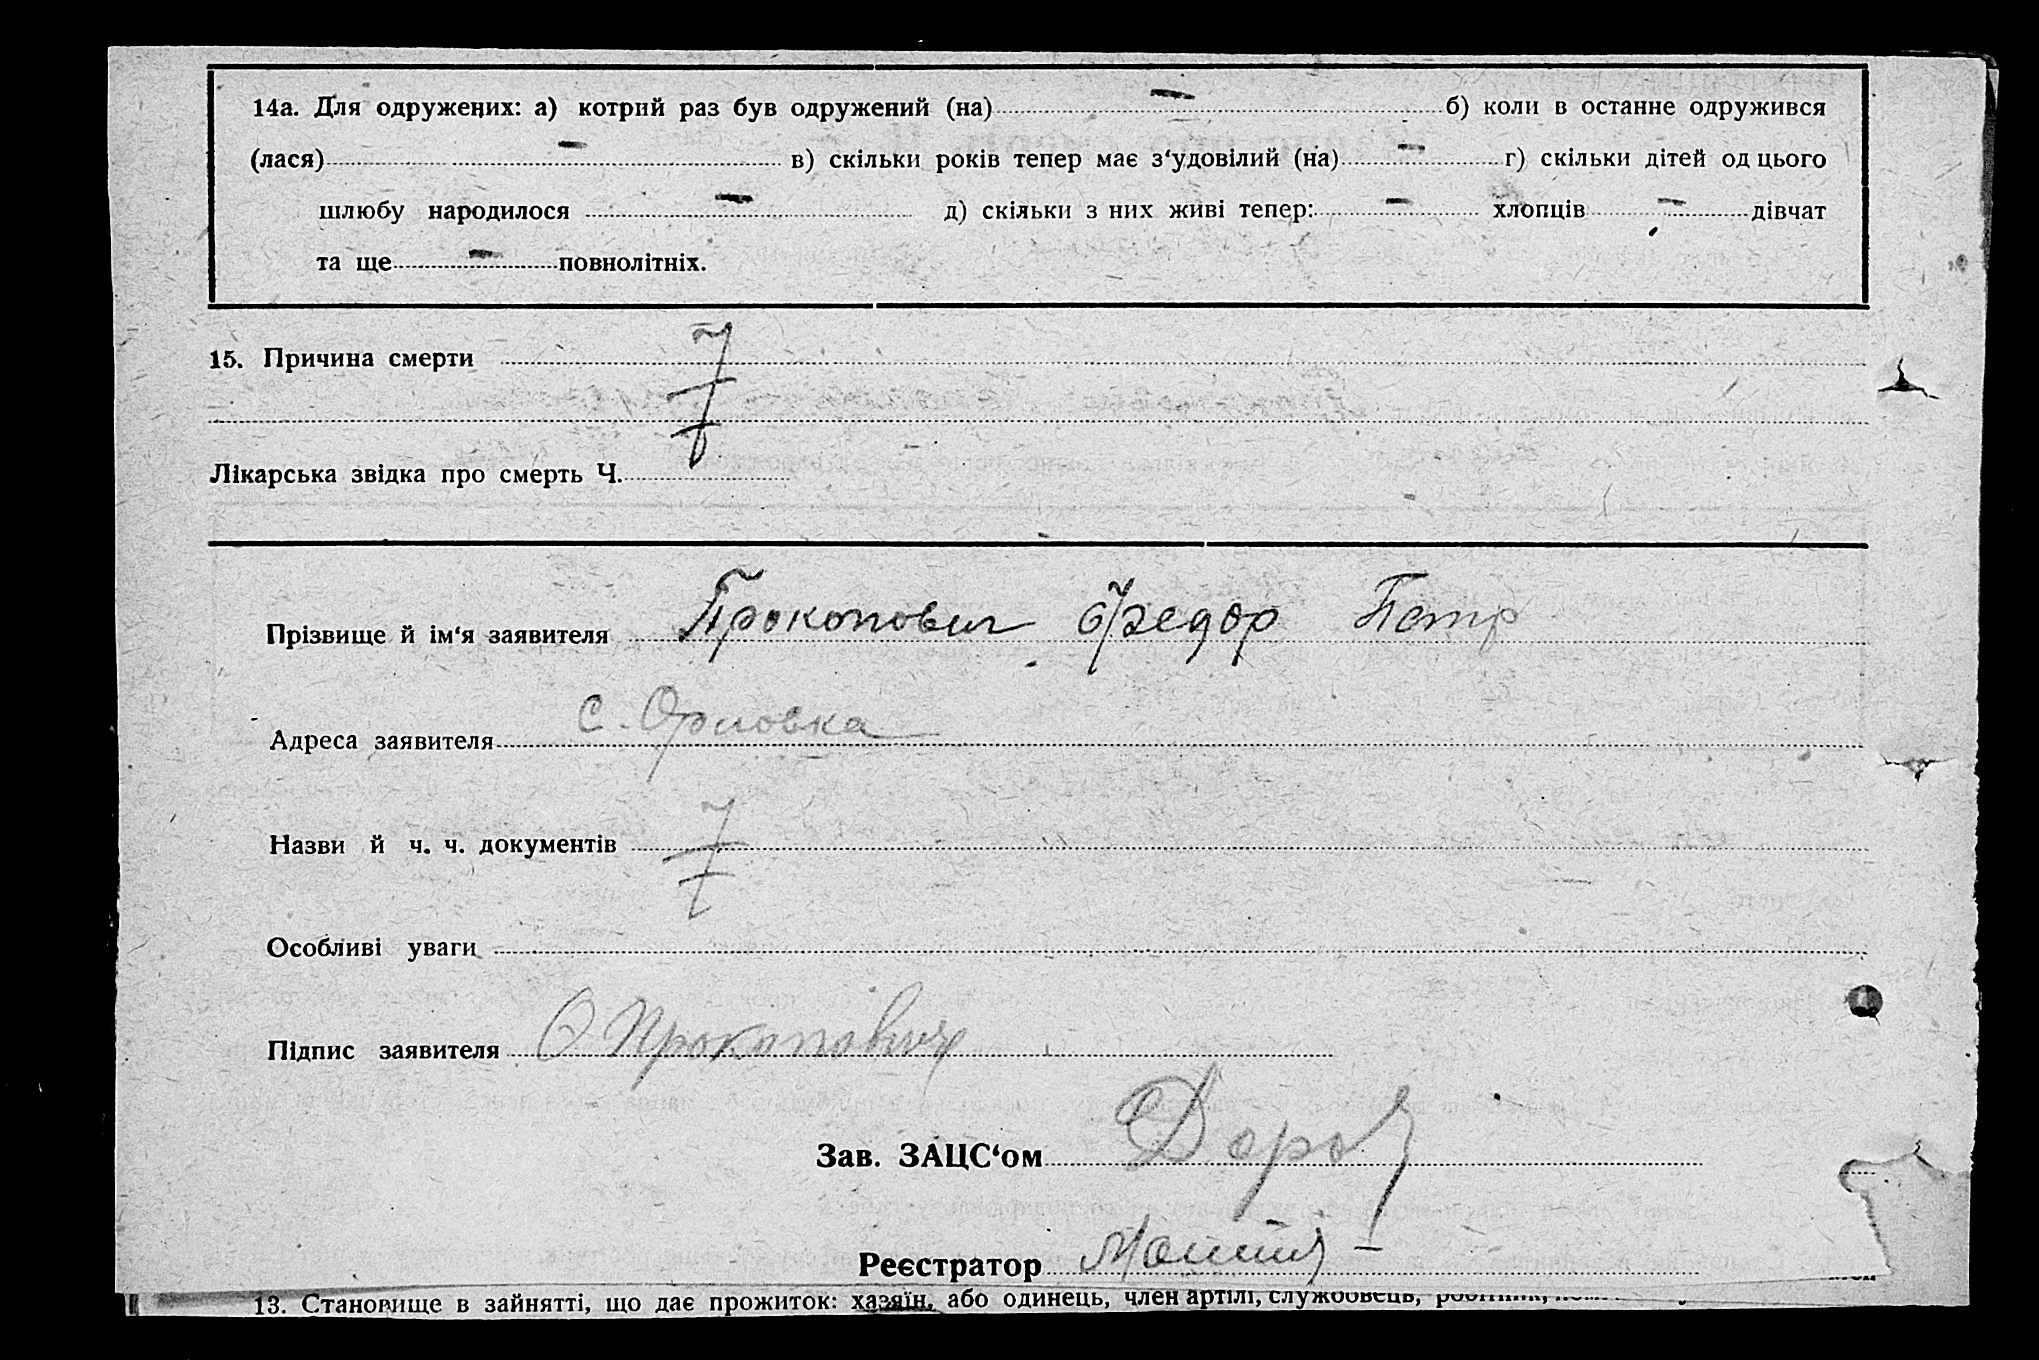 14а. Для одружених: а) котрий раз був одружений (на) — б) коли в останне одружився
(лася) — в) скільки років тепер має з‘удовілий (на) — г) скільки дітей од цього
шлюбу народилося — д) скільки з них живі тепер: — хлопців — дівчат
та ще — повнолітніх.
15. Причина смерти
Лікарська звідка про смерть Ч.
Прізвище й ім‘я заявителя Прокопович Федор Петр
Адреса заявителя с. Орловка
Назви й ч. ч. документів
Особливі уваги
Підпис заявителя Прокопович
Зав. ЗАЦС‘ом
Реєстратор
13. Становище в зайнятті, що дає прожиток: хазяїн, або одинець, член артілі, службовець,